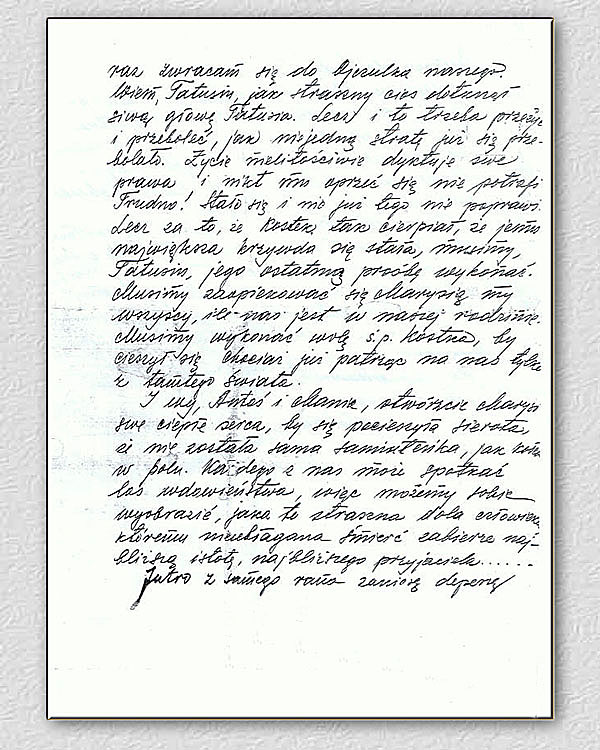 raz zwracam się do Ojczulka naszego.
Wiem, Tatusiu, jak straszny cios dotknął
siwą głowę Tatusia. Lecz i to trzeba przeżyć
i przeboleć, jak niejedną stratę już się prze-
bolało. Życie nielitościwie dyktuje swe
prawa i nikt mu oprzeć się nie potrafi.
Trudno! Stało się i nic już tego nie poprawi.
Lecz za to, że Kostek tak cierpiał, że jemu
największa krzywda się stała, musimy,
Tatusiu, jego ostatnią prośbę wykonać.
Musimy zaopiekować się Marysią my
wszyscy, ile nas jest w naszej rodzinie.
Musimy wykonać wolę ś.p. Kostka, by
cieszył się chociaż już patrząc na nas tylko
z tamtego świata.
I wy, Antoś i Mania, otwórzcie Marysi
swe ciepłe serca, by się pocieszyła sierota,
że nie została sama samiuteńka, jak kołek
w polu. Każdego z nas może spotkać
los wdowieństwa, więc możemy sobie
wyobrazić, jaka to straszna dola człowieka,
któremu nieubłagana śmierć zabierze naj-
bliższą istotę, najbliższego przyjaciela......
Jutro z samego rana zaniosę depeszę